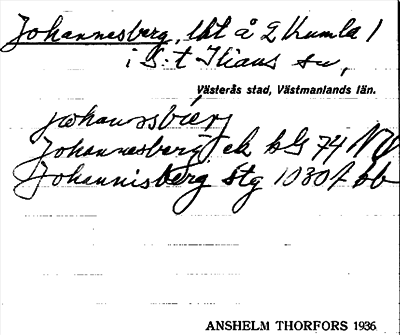 Johannesberg, lht å 2 Humla 1
i S:t Ilians sn,
Västerås stad, Västmanlands län.
Johannesberg ek bG 74 NV
Johannisberg Stg 1030 f bb
ANSHELM THORFORS 1936